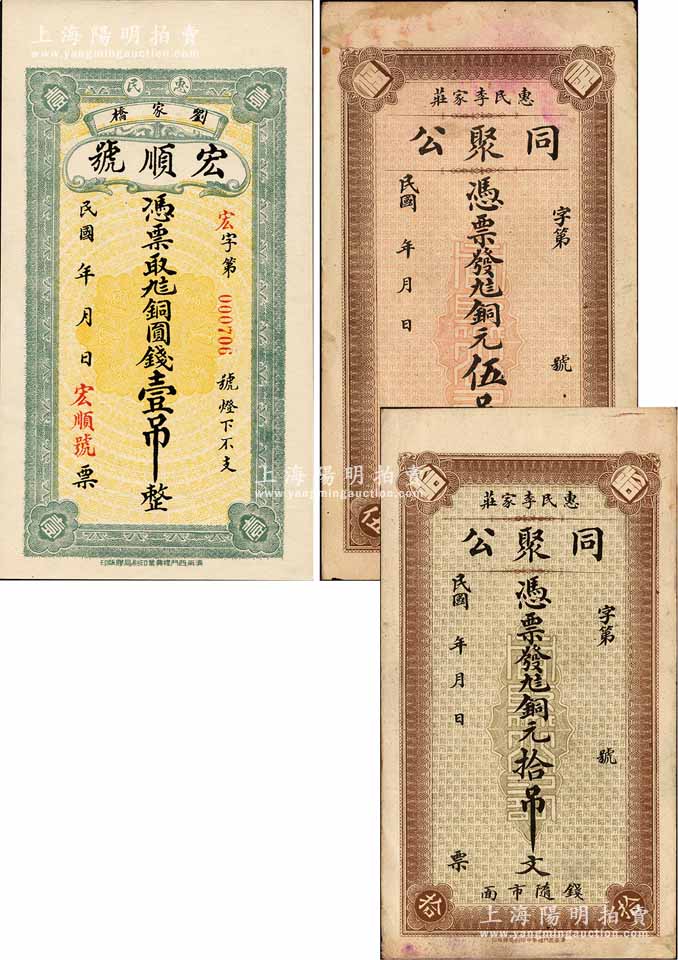 上海陽明拍賣
www.yangmingauction.com
惠民
劉家橋
宏順號
宏字第000706號燈下不支
憑票取九底銅圓錢壹吊整
民國 年 月 日 宏順號票
壹
壹
壹
壹
惠民李家莊
同聚公
字第 號
憑票發九底銅元伍吊
民國 年 月 日
伍
伍
伍
上海陽明拍賣
www.yangmingauction.com
惠民李家莊
同聚公
字第 號
憑票發九底銅元拾吊文
民國 年 月 日 票
錢隨市面
拾
拾
拾
拾
上海陽明拍賣
www.yangmingauction.com